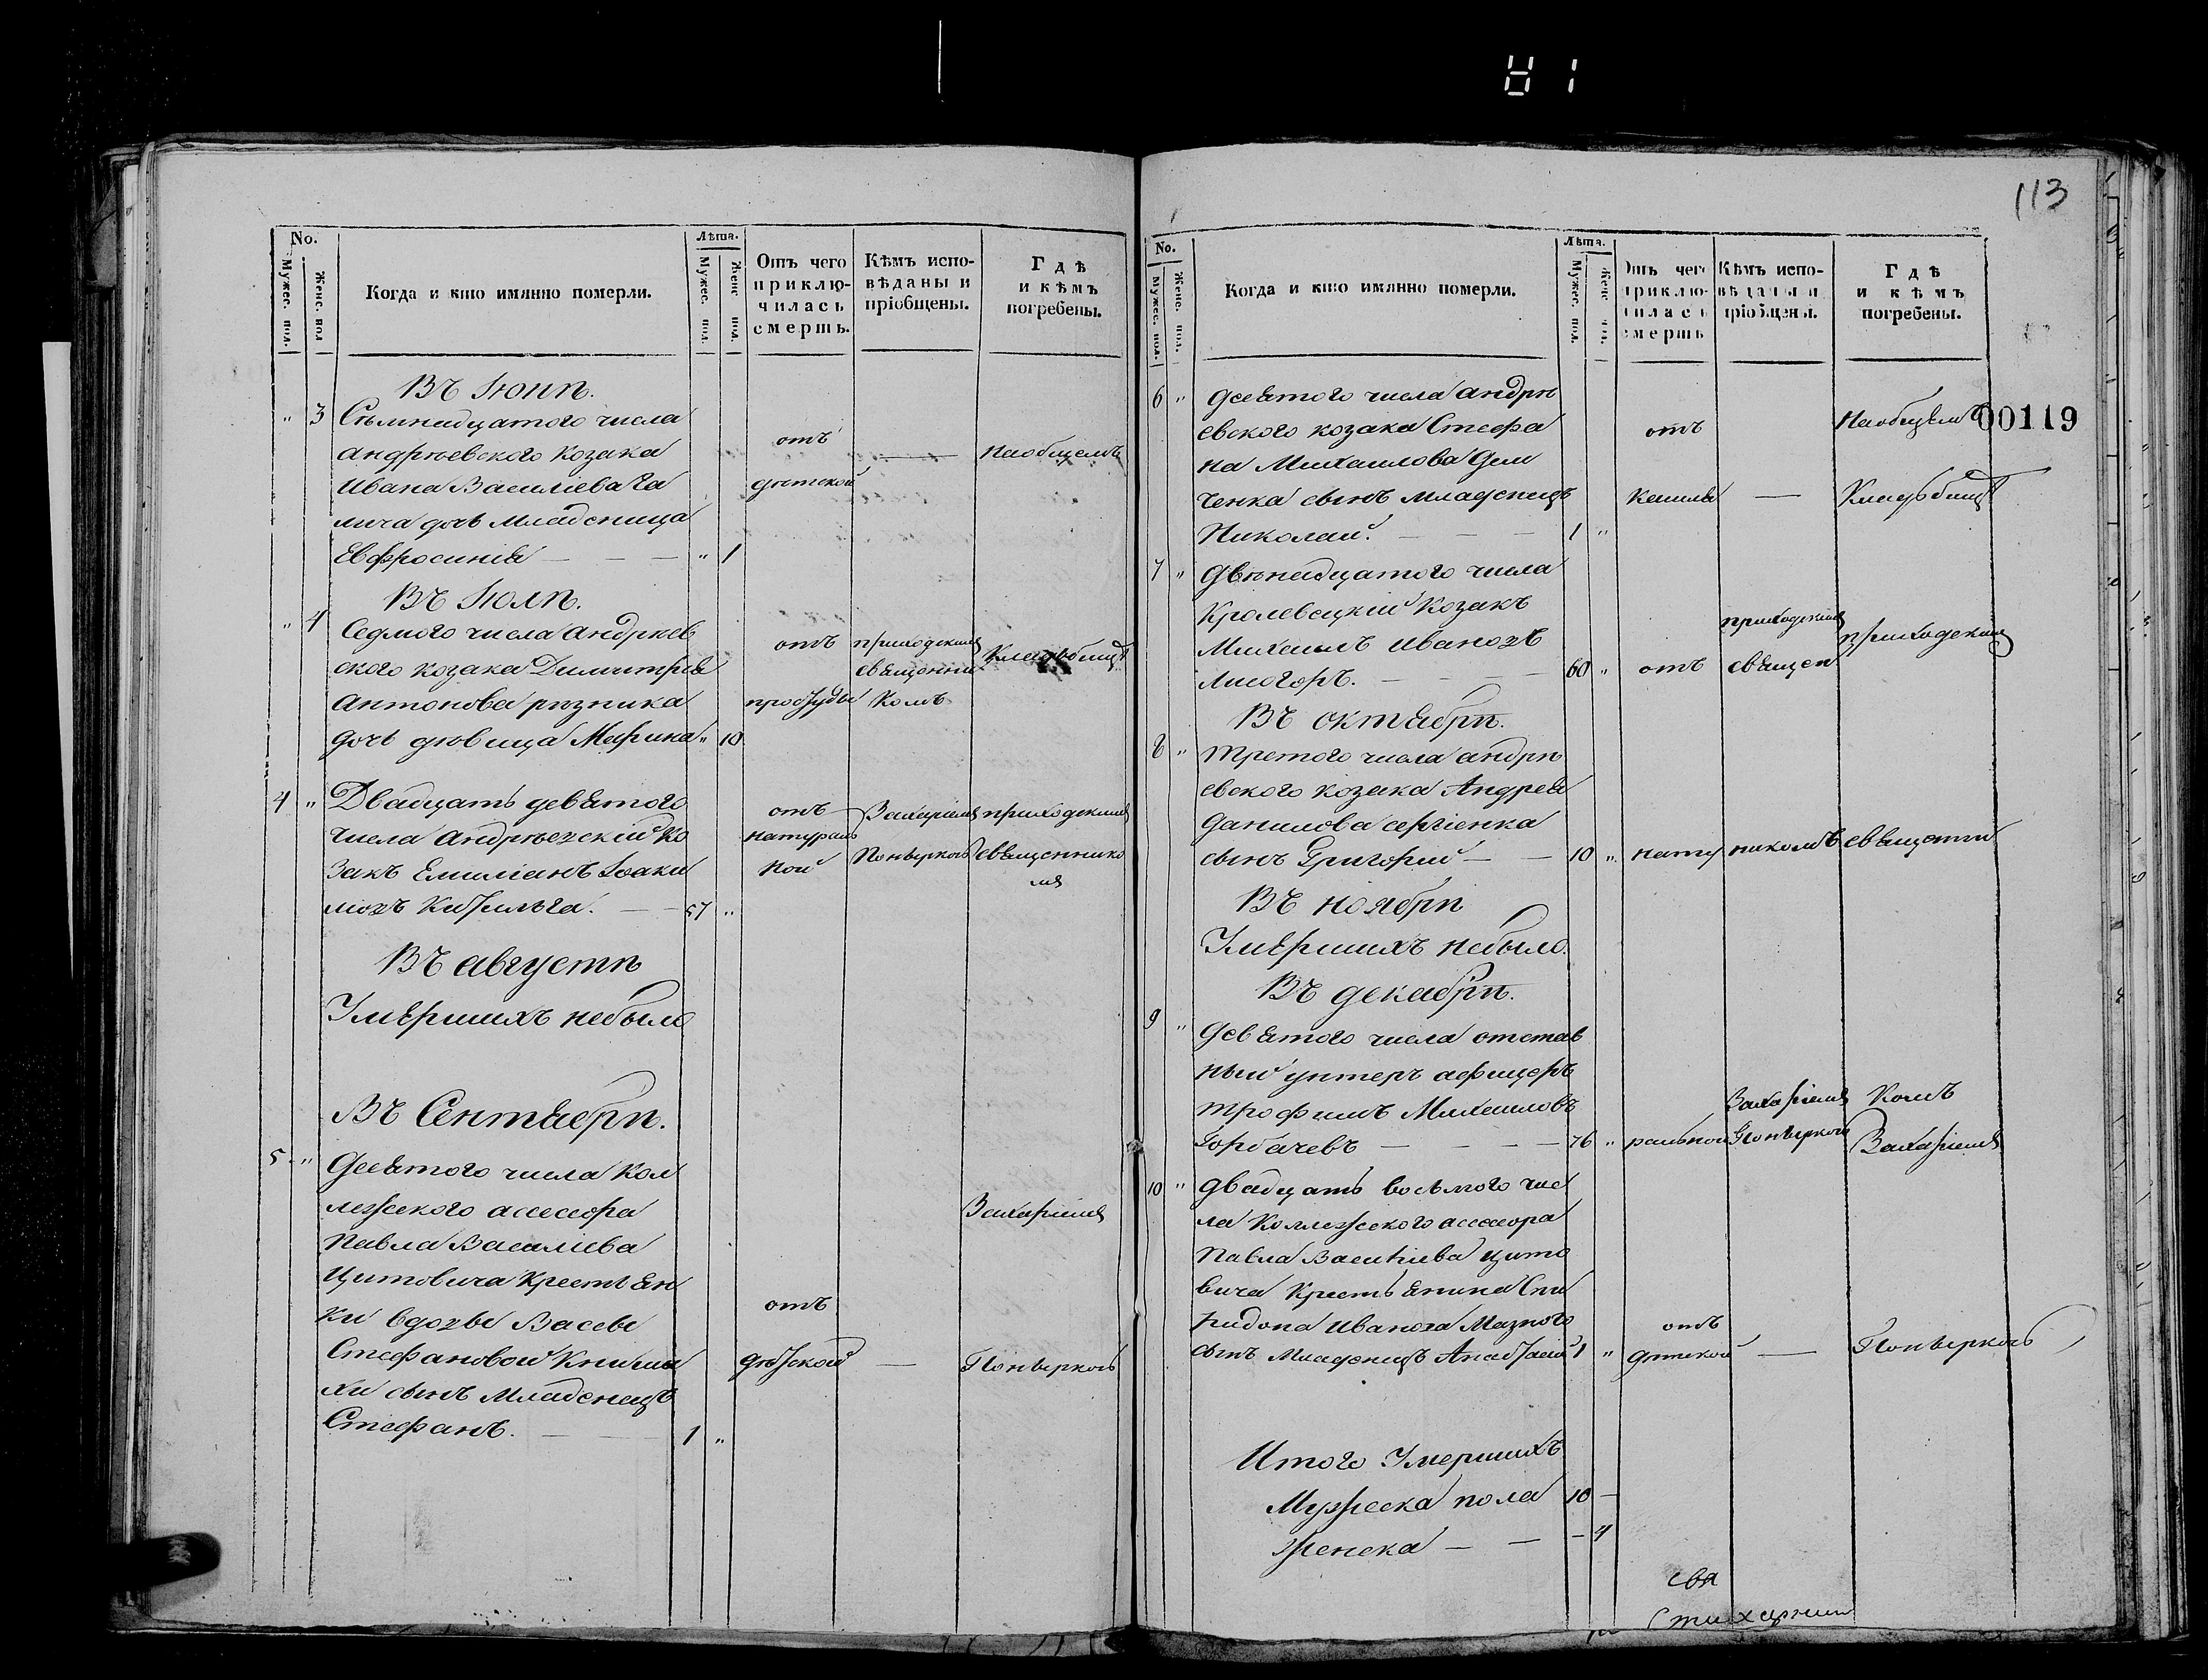 81
113
00119
No.
Мужес. пол.
Женс. пол
Когда и кто имянно померли.
Лѣта.
Мужес. пол.
Женс пол.
Отъ чего
приклю-
чилась
смерть.
Кѣмъ испо-
вѣданы и
пріобщены.
Гдѣ
и кѣмъ
погребены.
Въ Іюнѣ.
" 3 Сѣмнадцатого числа
андрѣевского козака
Ивана Василіева Га
лича дочь младеница
Евфросинія — — — " 1
отъ
дѣтской
——
на общемъ
Въ Іюлѣ.
" 4 Седмого числа андрѣев
ского козака Димитрія
Антонова рѣзника
дочь дѣвица Марина " 10
отъ
простуды
приходскимъ
священни
комъ
кладбищѣ
4 " Двадцать девятого
числа андрѣевскій ко
закъ Емиліанъ Іоаки
мовъ — 57 "
отъ
натураль
ной
Захаріемъ
Понѣркою
приходскимъ
священнико
мъ
Въ августѣ
Умершихъ небыло
Въ Сентябрѣ.
5 " Десятого числа Кол
лежского ассесора
Павла Василіева
Цитовича крестьян
ки вдовы Васевы
Стефановой
хи сынъ младенецъ
Стефанъ. — — 1 "
отъ
дѣтской
—
Захаріемъ
Понѣркою
No.
Мужес. пол.
Женс. пол.
Когда и кто имянно померли.
Лѣта.
Мужес. пол.
Женс пол.
Отъ чего
приклю-
чилась
смерть
Кѣмъ испо-
вѣданы и
пріобщены.
Гдѣ
и кѣмъ
погребены.
6 " Десятого числа андрѣ
евского козака Стефа
на Михаилова Дем
ченка сынъ младенецъ
Николай. — — — 1 "
отъ
кашля
—
На общемъ
Кладбищѣ
7 " Двѣнадцатого числа
Кролевецкій Козакъ
Михаилъ Ивановъ
Лисогоръ. — — — 60 "
отъ
приходскимъ
священ
приходскимъ
Въ октябрѣ.
8 " Третого числа андрѣ
евского козака Андрея
Данилова сергіенка
сынъ Григорій — — 10 "
нату
никомъ
священни
Въ ноябрѣ
Умершихъ небыло.
Въ декабрѣ.
9 " Девятого числа отстав
ный унтеръ афицеръ
трофимъ Михаиловъ
Горбачевъ — — — 76 "
ральной
Захаріемъ
Понѣркою
комъ
Захаріемъ
10 " Двадцать восьмого чис
ла Коллежского ассесора
Павла Василіева Цито
вича крестьянина Спи
ридона Иванова Мазного
сынъ младенецъ 1 "
отъ
дѣтской
—
Понѣркою
Итого Умершихъ
Мужеска пола 10 —
Женска — — — 4
свя